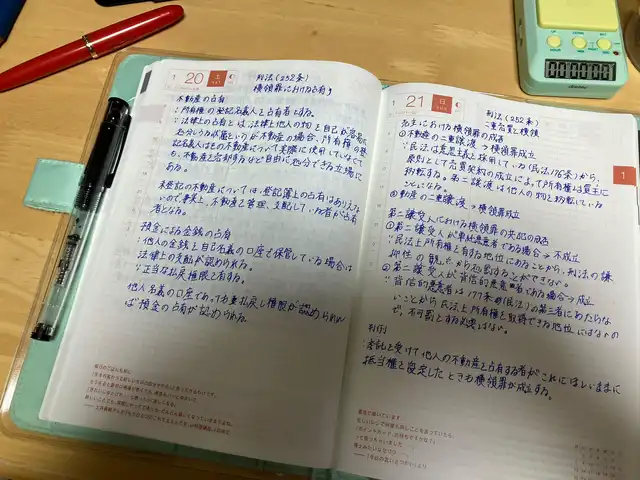 1 20 土 SAT
刑法(252条)
横領罪における占有
不動産の占有
∴所有権の登記名義人を占有者とする。
∵法律上の占有とは、法律上他人の物を自己が容易に
処分しうる状態というが不動産の場合、所有権の登
記名義人はその不動産について実際に使用していなくて
も、不動産を売却するなど自由に処分できる立場に
ある。
未登記の不動産については登記簿上の占有はありえな
いので、事実上、不動産を管理、支配している者が占有
者となる。
預金による金銭の占有
∴他人の金銭を自己名義の口座で保管している場合は
法律上の支配が認められる。
∵正当な払戻権限を有する。
他人名義の口座であっても払戻し権限が認められれ
ば預金の占有が認められる。
1 21 日 SUN
刑法(252条)
二重売買と横領
売主における横領罪の成否
①不動産の二重譲渡→横領罪成立
∵民法は意思主義を採用している(民法176条)から、
原則として売買契約の成立によって所有権は買主に
移転する。第二譲渡は他人の物を売却している
ことになる。
②動産の二重譲渡→横領罪成立
第二譲受人における横領罪の共犯の成否
①第二譲受人が単純悪意者である場合→不成立
∵民法上所有権を有する地位にあることから、刑法の謙
抑性の観点から処罰することができない。
②第二譲受人が背信的悪意者である場合→成立
∵背信的悪意者は177条(民法)の第三者にあたらな
いことから民法上所有権を取得できる地位にはないの
で、不可罰とする必要はない。
判例
:委託を受けて他人の不動産を占有する者がこれにほしいままに
抵当権を設定したときも横領罪が成立する。
1